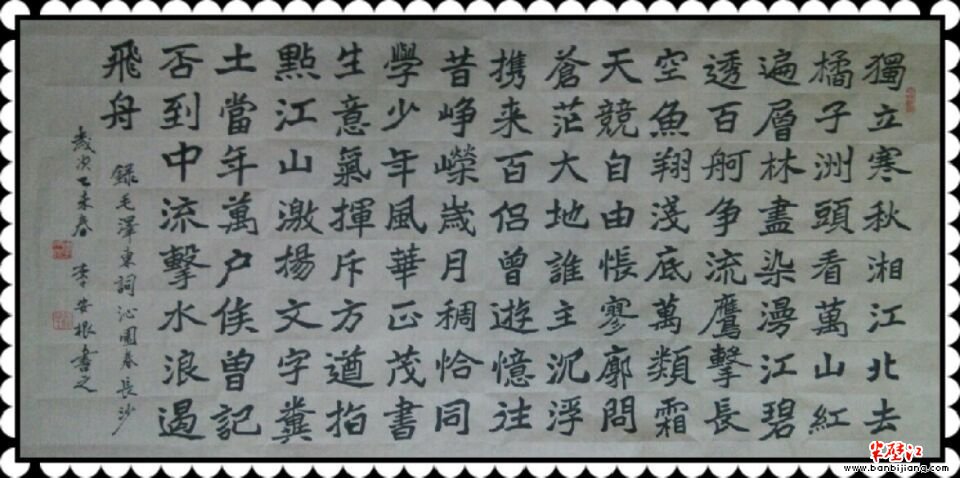 獨立寒秋湘江北去
橘子洲頭看萬山紅
遍層林盡染漫江碧
透百舸争流鷹擊長
空魚翔淺底萬類霜
天競自由悵寥廓問
蒼茫大地誰主沉浮
携来百侣曾遊憶往
昔峥嶸歲月稠恰同
學少年風華正茂書
生意氣揮斥方遒指
點江山激揚文字糞
土當年萬户侯曾記
否到中流擊水浪遏
飛舟
録毛澤東詞沁園春長沙
歲次乙未春 李安根書之
半壁江
www.banbijiang.com